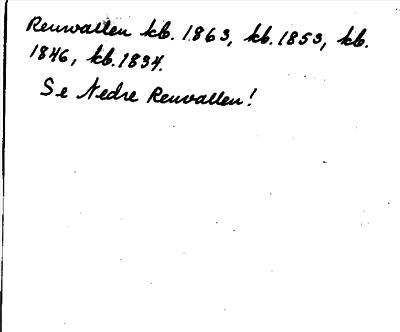 Renvallen kb. 1863, kb. 1853, kb.
1846, kb. 1834.
Se Nedre Renvallen!